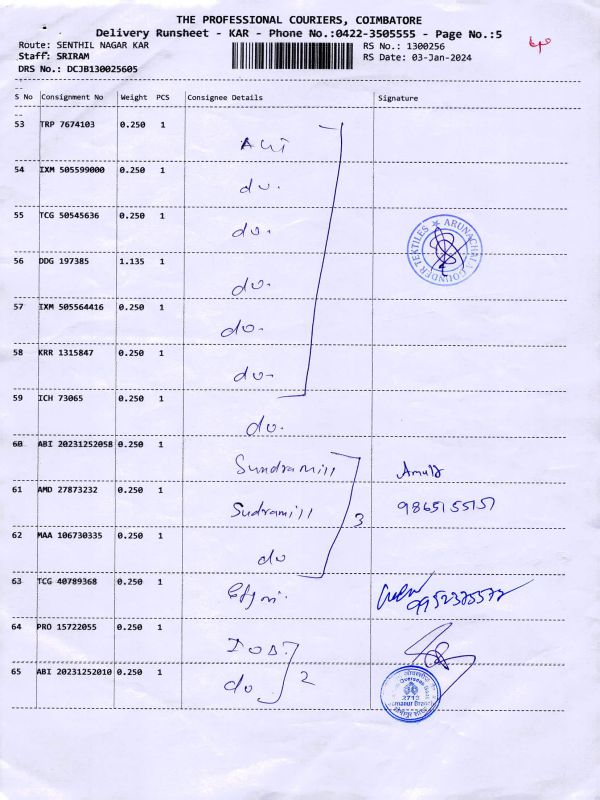 THE PROFESSIONAL COURIERS, COIMBATORE
Delivery Runsheet - KAR - Phone No.:0422-3505555 - Page No.:5
Route: SENTHIL NAGAR KAR RS No.: 1300256
Staff: SRIRAM RS Date: 03-Jan-2024
DRS No.: DCJB130025605
S No Consignment No Weight PCS Consignee Details Signature
53 TRP 7674103 0.250 1
54 IXM 505599000 0.250 1 do.
55 TCG 50545636 0.250 1 do.
ARUNACHALA GOUNDER TEXTILES
56 DDG 197385 1.135 1 do.
57 IXM 505564416 0.250 1 do.
58 KRR 1315847 0.250 1 do.
59 ICH 73065 0.250 1 do.
60 ABI 20231252058 0.250 1 Sundramill
61 AMD 27873232 0.250 1 Sudramill 9865155157
62 MAA 106730335 0.250 1 do 3
63 TCG 40789368 0.250 1
64 PRO 15722055 0.250 1 IOB.
65 ABI 20231252010 0.250 1 do 2
Overseas Bank
2713